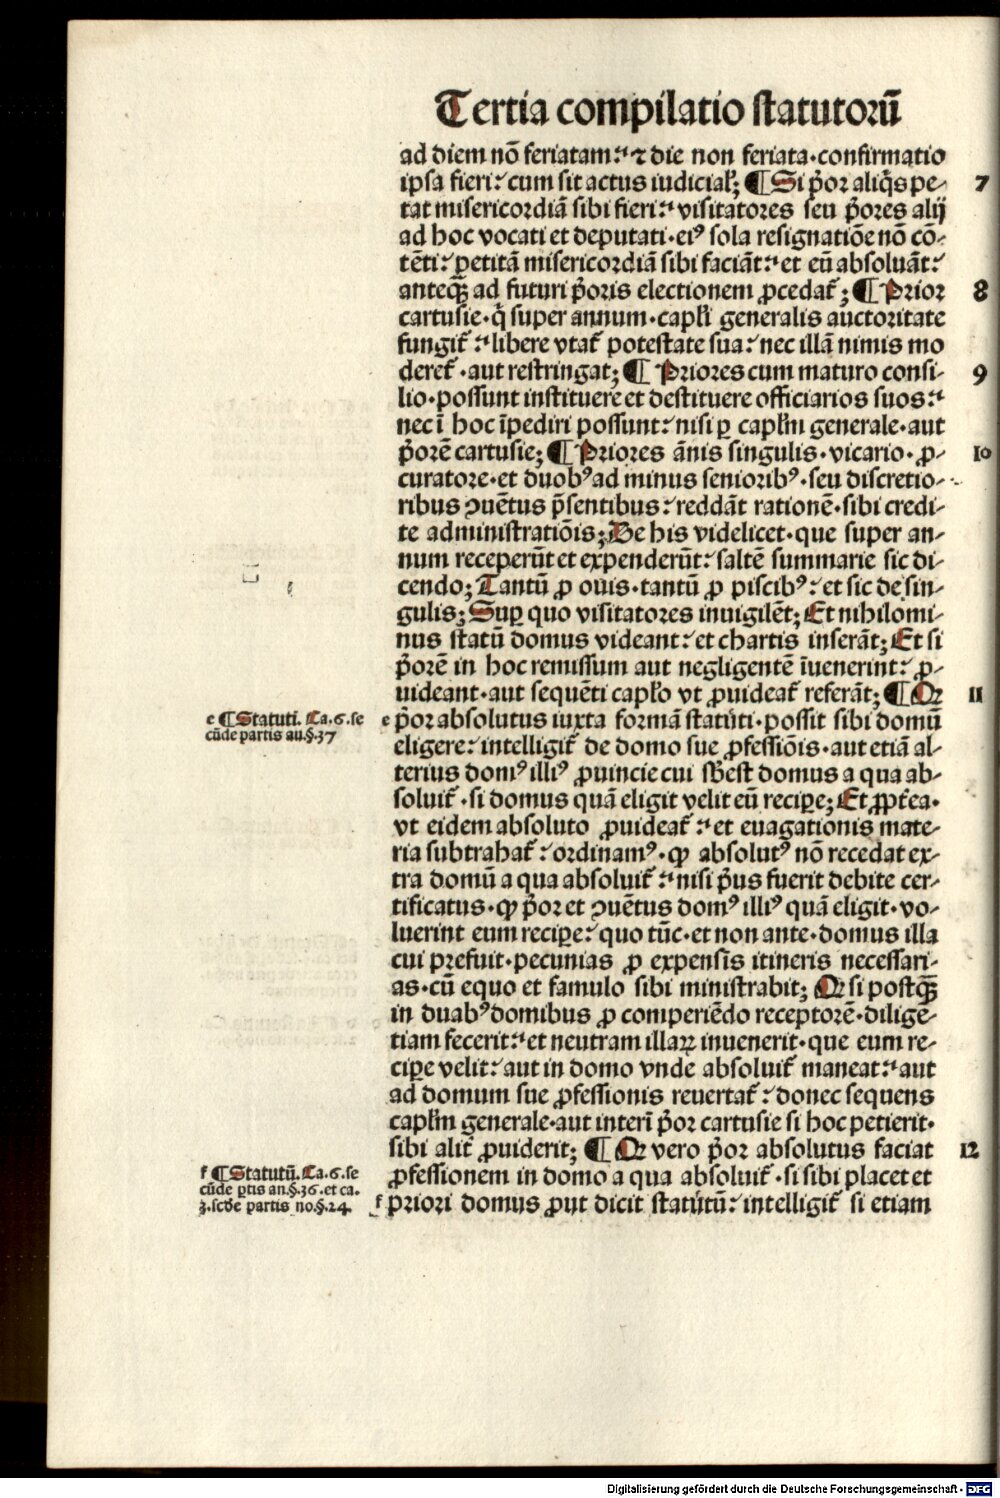 Tertia compilatio statutorū
ad diem nō feriatam: ⁊ die non feriata·confirmatio
ipsa fieri: cum sit actus iudicial̓; ¶ Si p̄or aliq̄s pe- 7
tat misericordiā sibi fieri: visitatores seu p̄ores alij
ad hoc vocati et deputati·eiꝰ sola resignatiōe nō cō-
tēti: ꝑetitā misericordiā sibi faciāt: et eū absoluāt:
anteqꝫ̄ ad futuri p̄oris electionem ꝓcedat᷑; ¶ Prior 8
cartusie·q̄ super annum·capłi generalis auctoritate
fungit᷑: libere vtat᷑ potestate sua: nec illā nimis mo
deret᷑·aut restringat; ¶ Priores cum maturo consi- 9
lio·possunt instituere et destituere officiarios suos:
nec ī hoc īpediri possunt: nisi ꝑ capłm generale·aut
p̄orē cartusie; ¶ Priores ānis singulis·vicario·ꝓ- 10
curatore·et duobꝰ ad minus senioribꝰ·seu discretio-
ribus ꝯuētus p̄sentibus: reddāt rationē·sibi credi-
te administratiōis; De his videlicet·que super an-
num receperūt et expenderūt: saltē summarie sic di-
cendo; Tantū ꝓ ouis·tantū ꝓ piscibꝰ: et sic de sin-
gulis; Suꝑ quo visitatores inuigilēt; Et nihilomi-
nus statū domus videant: et chartis inserāt; Et si
p̄orē in hoc remissum aut negligentē īuenerint: ꝓ-
uideant·aut sequēti capło vt ꝓuideat᷑ referāt; ¶ Qꝛ 11
e ¶ Statuti. Ca.6.se
cūde partis au.§.37
e p̄or absolutus iuxta formā statuti·possit sibi domū
eligere: intelligit᷑ de domo sue ꝓfessiōis·aut etiā al-
terius domꝰ illiꝰ ꝓuincie cui sƀest domus a qua ab-
soluit᷑·si domus quā eligit velit eū reciꝑe; Et ꝓpt̄ea·
vt eidem absoluto ꝓuideat᷑: et euagationis mate-
ria subtrahat᷑: ordinamꝰ·ꝙ absolutꝰ nō recedat ex-
tra domū a qua absoluit᷑: nisi p̄us fuerit debite cer-
tificatus·ꝙ p̄or et ꝯuētus domꝰ illiꝰ quā eligit·vo-
luerint eum reciꝑe: quo tūc·et non ante·domus illa
cui prefuit·pecunias ꝓ expensis itineris necessari-
as·cū equo et famulo sibi ministrabit; Qꝛ si postqꝫ̄
in duabꝰ domibus ꝓ comperiēdo receptorē·diligē-
tiam fecerit: et neutram illaꝝ inuenerit·que eum re-
ciꝑe velit: aut in domo vnde absoluit᷑ maneat: aut
ad domum sue ꝓfessionis reuertat᷑: donec sequens
capłm generale·aut interī p̄or cartusie si hoc petierit·
sibi alit᷑ ꝓuiderit; ¶ Qꝛ vero p̄or absolutus faciat 12
f ¶ Statutū. Ca.6.se
cūde ꝑtis an.§.36.et ca.
3.scđe partis no.§.24.
ꝓfessionem in domo a qua absoluit᷑·si sibi placet et
f priori domus ꝓut dicit statutū: intelligit᷑ si etiam
Digitalisierung gefördert durch die Deutsche Forschungsgemeinschaft - DFG